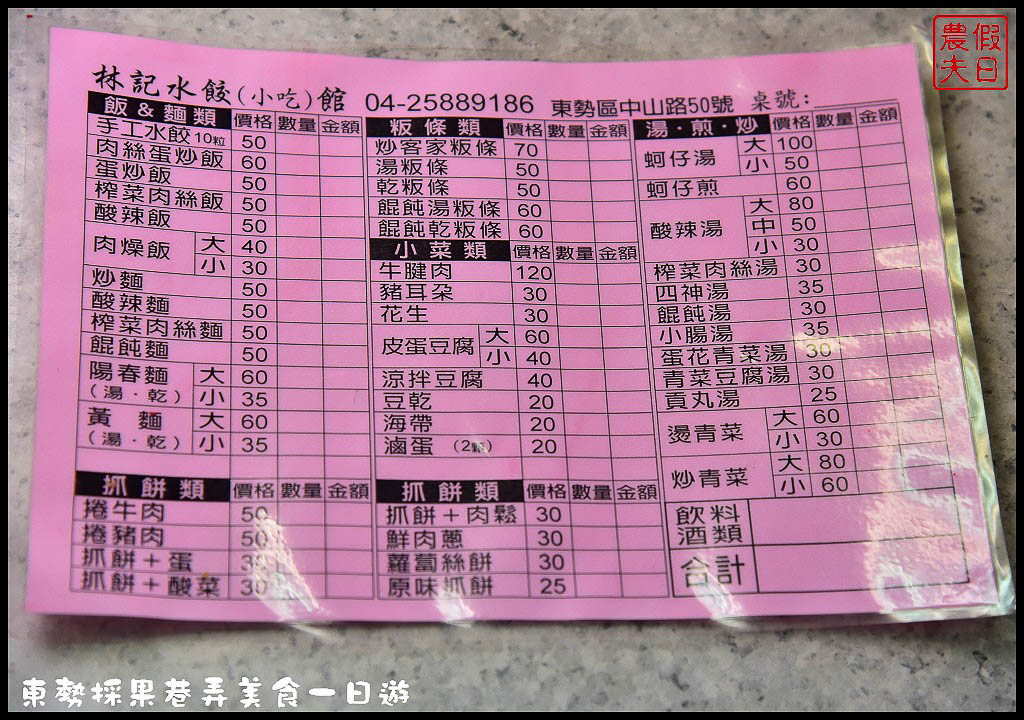 農夫
假日
林記水餃(小吃)館 04-25889186 東勢區中山路50號 桌號:
飯&麵類 價格 數量 金額
手工水餃10粒 50
肉絲蛋炒飯 60
蛋炒飯 50
榨菜肉絲飯 50
酸辣飯 50
肉燥飯 大 40
小 30
炒麵 50
酸辣麵 50
榨菜肉絲麵 50
餛飩麵 50
陽春麵 大 60
(湯.乾) 小 35
黃麵 大 60
(湯.乾) 小 35
抓餅類 價格 數量 金額
捲牛肉 50
捲豬肉 50
抓餅+蛋 30
抓餅+酸菜 30
粄條類 價格 數量 金額
炒客家粄條 70
湯粄條 50
乾粄條 50
餛飩湯粄條 60
餛飩乾粄條 60
小菜類 價格 數量 金額
牛腱肉 120
豬耳朵 30
花生 30
皮蛋豆腐 大 60
小 40
涼拌豆腐 40
豆乾 20
海帶 20
滷蛋(2顆) 20
抓餅類 價格 數量 金額
抓餅+肉鬆 30
鮮肉蔥 30
蘿蔔絲餅 30
原味抓餅 25
湯.煎.炒 價格 數量 金額
蚵仔湯 大 100
小 50
蚵仔煎 60
酸辣湯 大 80
中 50
小 30
榨菜肉絲湯 30
四神湯 35
餛飩湯 30
小腸湯 35
蛋花青菜湯 30
青菜豆腐湯 30
貢丸湯 25
燙青菜 大 60
小 30
炒青菜 大 80
小 60
飲料
酒類
合計
東勢採果巷弄美食一日遊